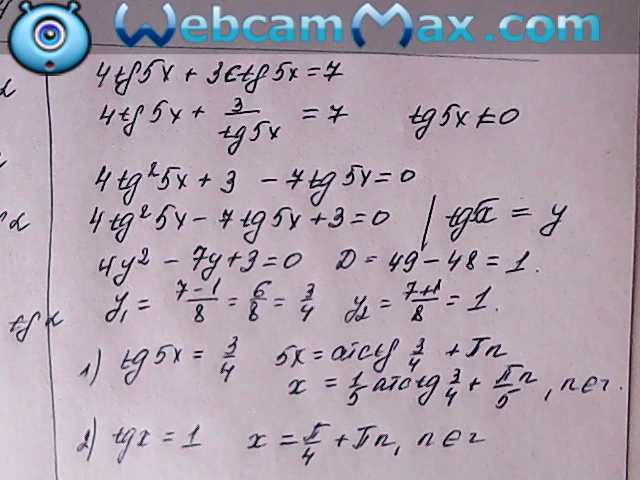 WebcamMax.com
4tg5x + 3ctg5x = 7
4tg5x + 3/tg5x = 7 tg5x ≠ 0
4tg²5x + 3 - 7tg5x = 0
4tg²5x - 7tg5x + 3 = 0 | tg5x = y
4y² - 7y + 3 = 0 D = 49 - 48 = 1.
y₁ = 7-1/8 = 6/8 = 3/4 y₂ = 7+1/8 = 1.
tg α
1) tg5x = 3/4 5x = arctg 3/4 + πn
x = 1/5 arctg 3/4 + πn/5, n∈z.
2) tgx = 1 x = π/4 + πn, n∈z